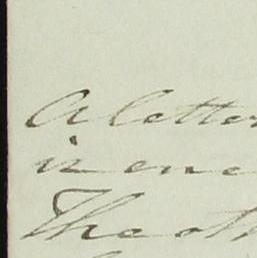 A letter
in one
The oth